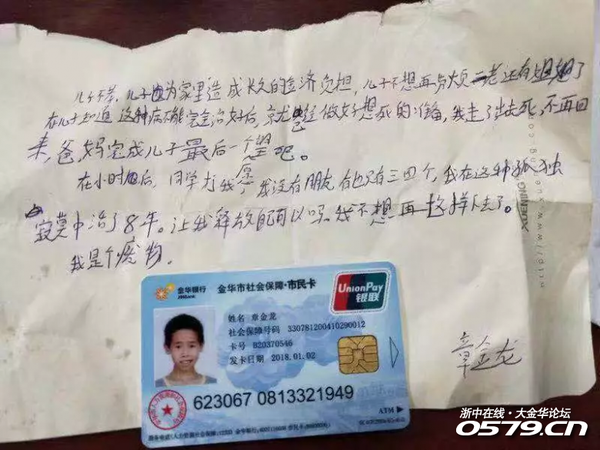 儿子不孝,儿子因为家里造成长久的经济负担,儿子不想再 二老还有姐姐了
在儿子知道这种病不能完全治好后,就已经做好想死的准备,我走了出去死,不再回
来,爸妈完成儿子最后一个愿望吧。
在小时 后,同学 我 我没有朋友,有也只有三四个,我在这种孤独
寂寞中治了8年。让我释放 可以吗,我不想再这样下去了。
我是个废物。
章金龙
金华银行
金华市社会保障·市民卡
UnionPay
银联
姓名 章金龙
社会保障号码 330781200410290012
卡号 B20370546
发卡日期 2018.01.02
623067 0813321949
ATM
浙中在线·大金华论坛
0579.CN